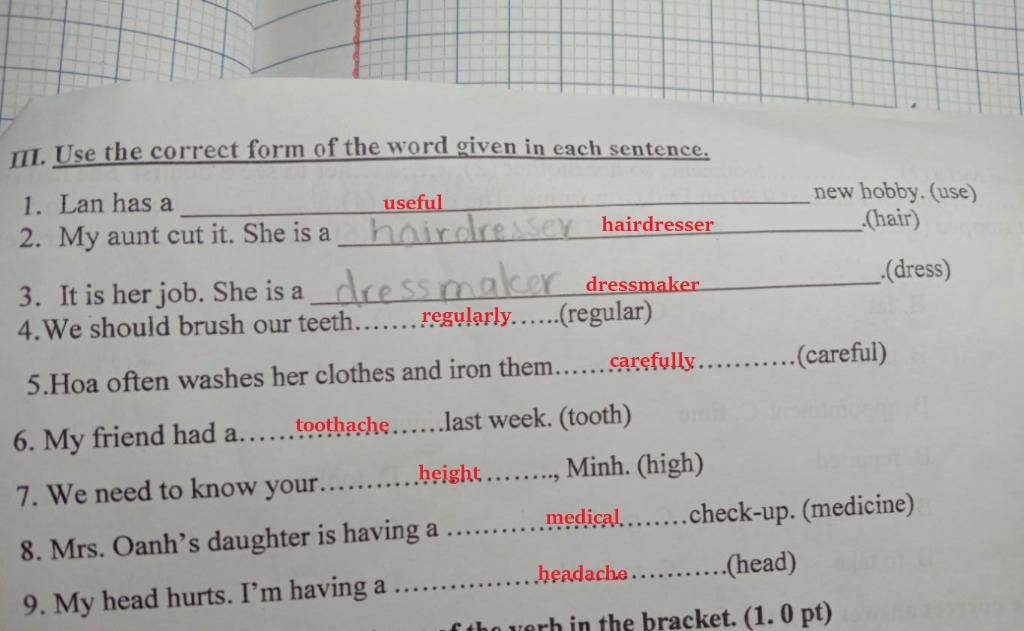 III. Use the correct form of the word given in each sentence.
1. Lan has a useful new hobby. (use)
2. My aunt cut it. She is a hairdresser hairdresser .(hair)
3. It is her job. She is a dressmaker dressmaker .(dress)
4.We should brush our teeth………regularly……(regular)
5.Hoa often washes her clothes and iron them……carefully…………(careful)
6. My friend had a……toothache……last week. (tooth)
7. We need to know your…………height………, Minh. (high)
8. Mrs. Oanh's daughter is having a …………medical………check-up. (medicine)
9. My head hurts. I'm having a ……………headache…………(head)
of the verb in the bracket. (1. 0 pt)